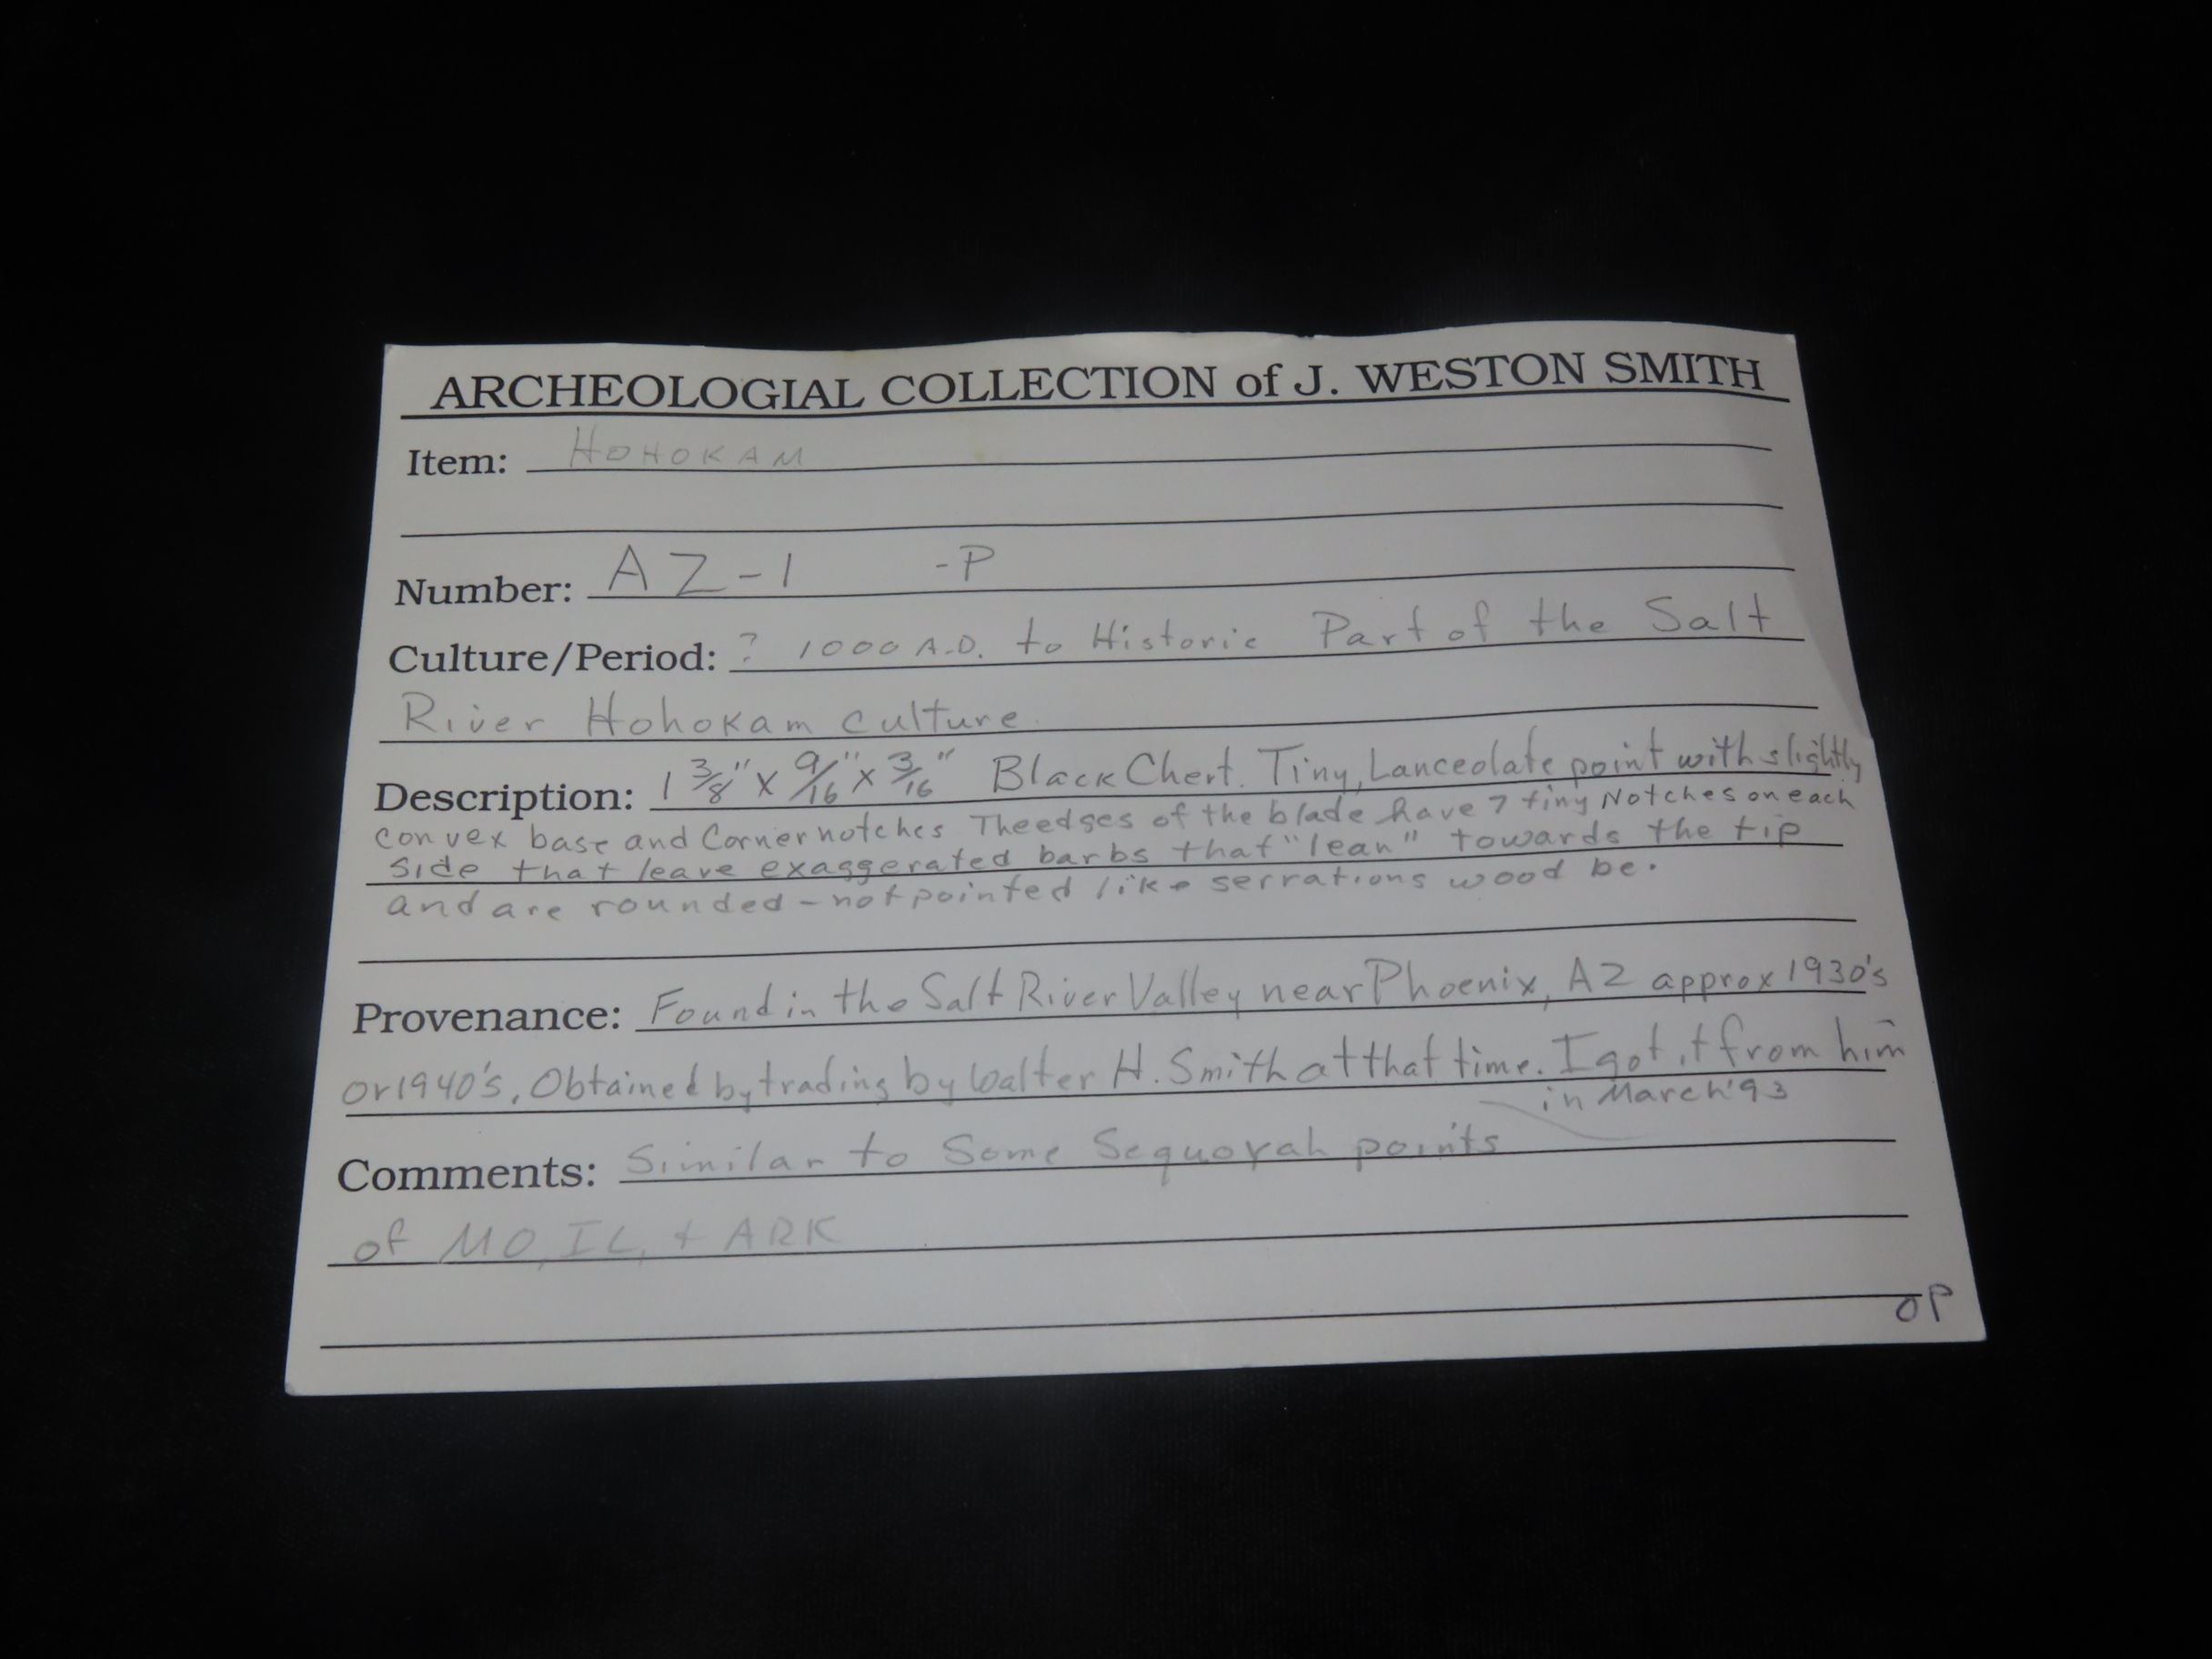 ARCHEOLOGIAL COLLECTION of J. WESTON SMITH
Item: HOHOKAM
Number: AZ-1 -P
Culture/Period: ? 1000 A.D. to Historic Part of the Salt
River Hohokam culture
Description: 1 3/8" x 9/16" x 3/16" Black Chert. Tiny, Lanceolate point with slightly
convex base and Corner notches The edges of the blade have 7 tiny Notches on each
side that leave exaggerated barbs that "lean" towards the tip
and are rounded - not pointed like serrations wood be.
Provenance: Found in the Salt River Valley near Phoenix, AZ approx 1930's
or 1940's. Obtained by trading by Walter H. Smith at that time. I got it from him
in March '93
Comments: Similar to Some Sequoyah points
of MO, IL, + ARK
OP